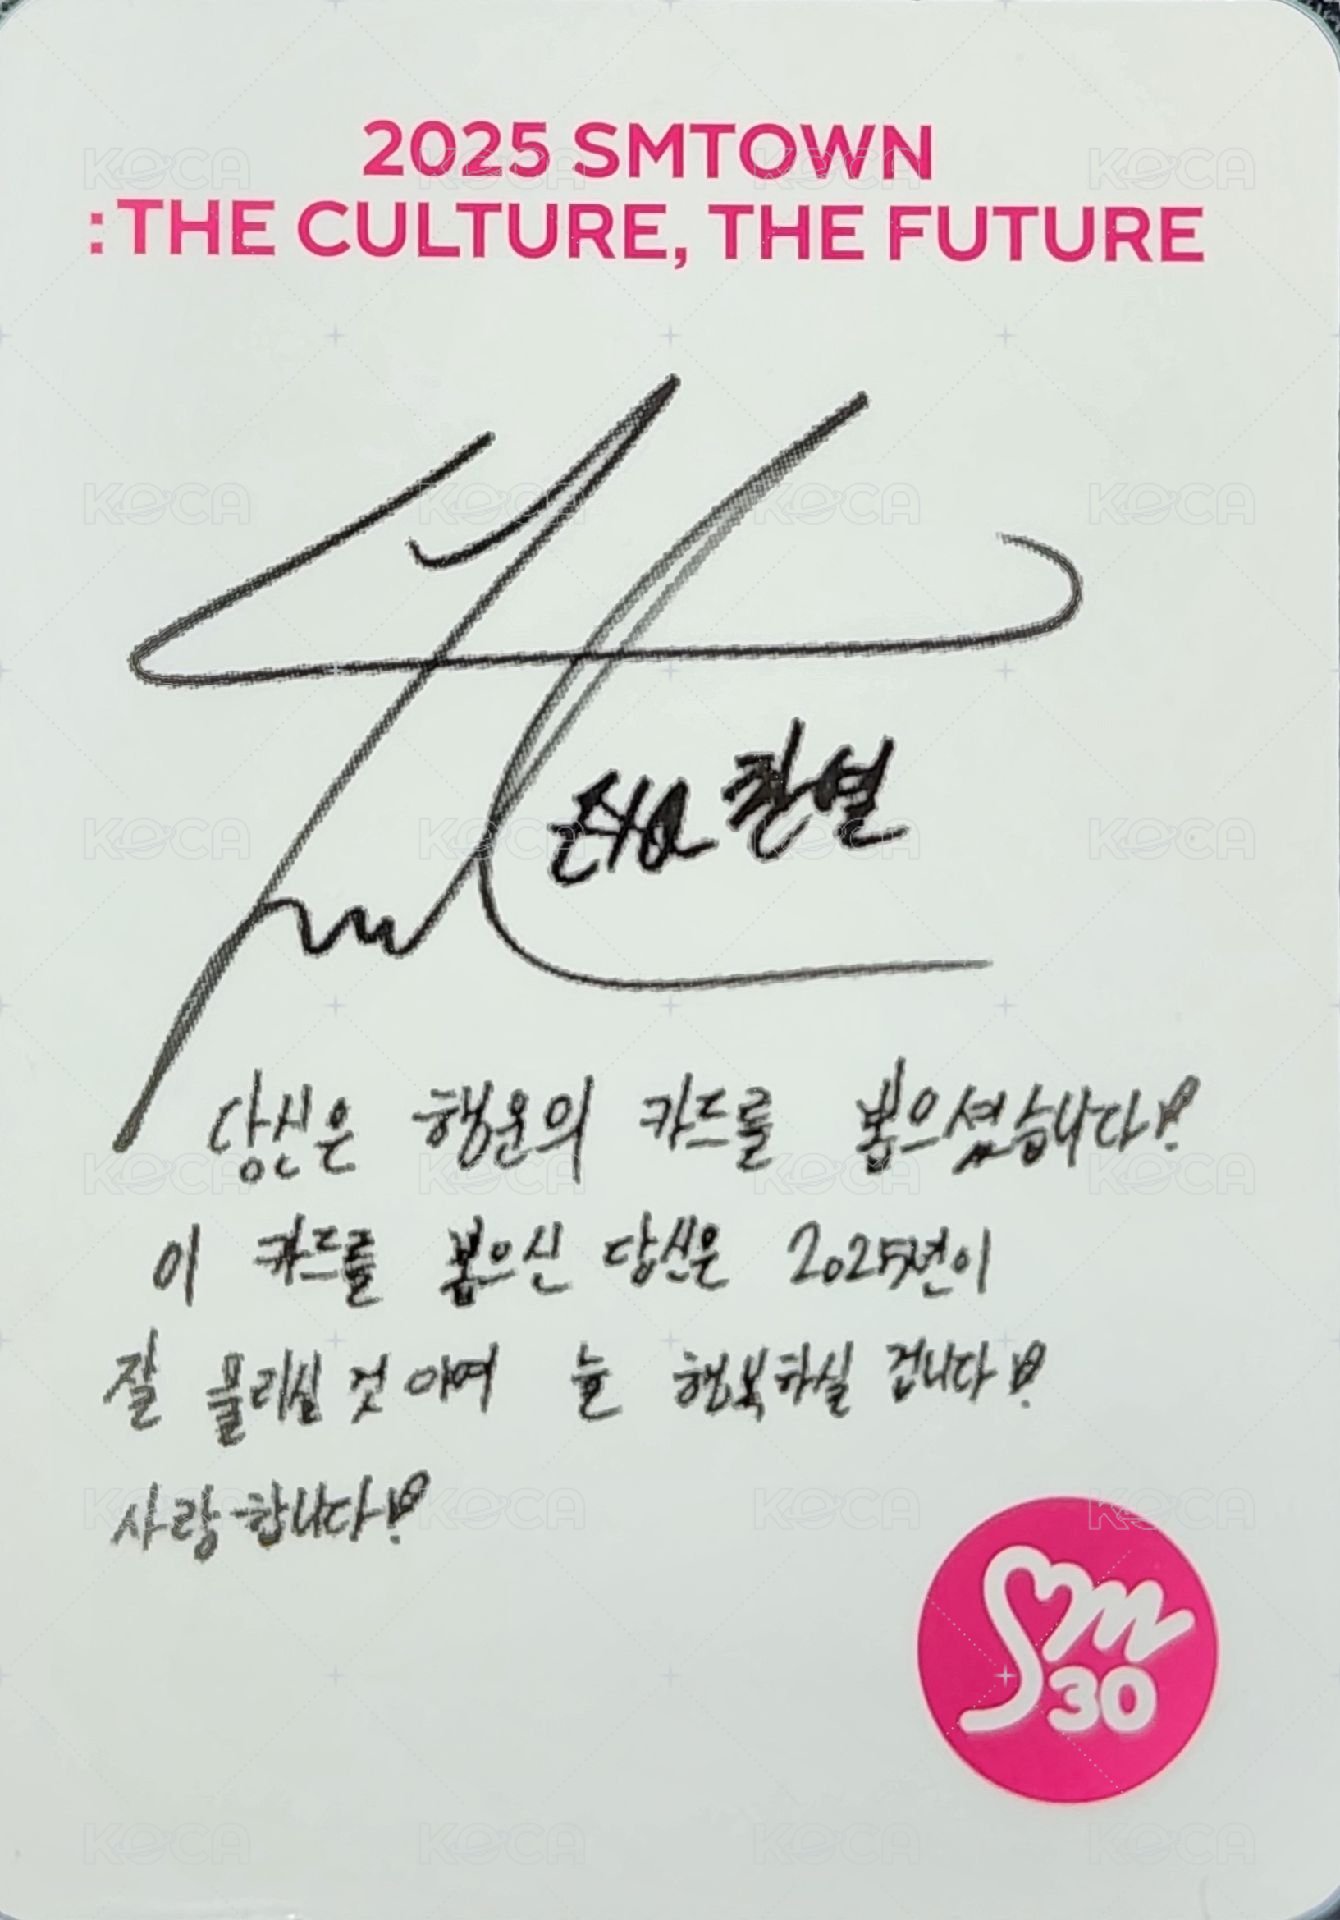 2025 SMTOWN
: THE CULTURE, THE FUTURE
EXO 찬열
당신은 행운의 카드를 뽑으셨습니다!
이 카드를 뽑으신 당신은 2025년이
잘 풀리실 것이며 늘 행복하실 겁니다!
사랑합니다!
SM
30
KOCA